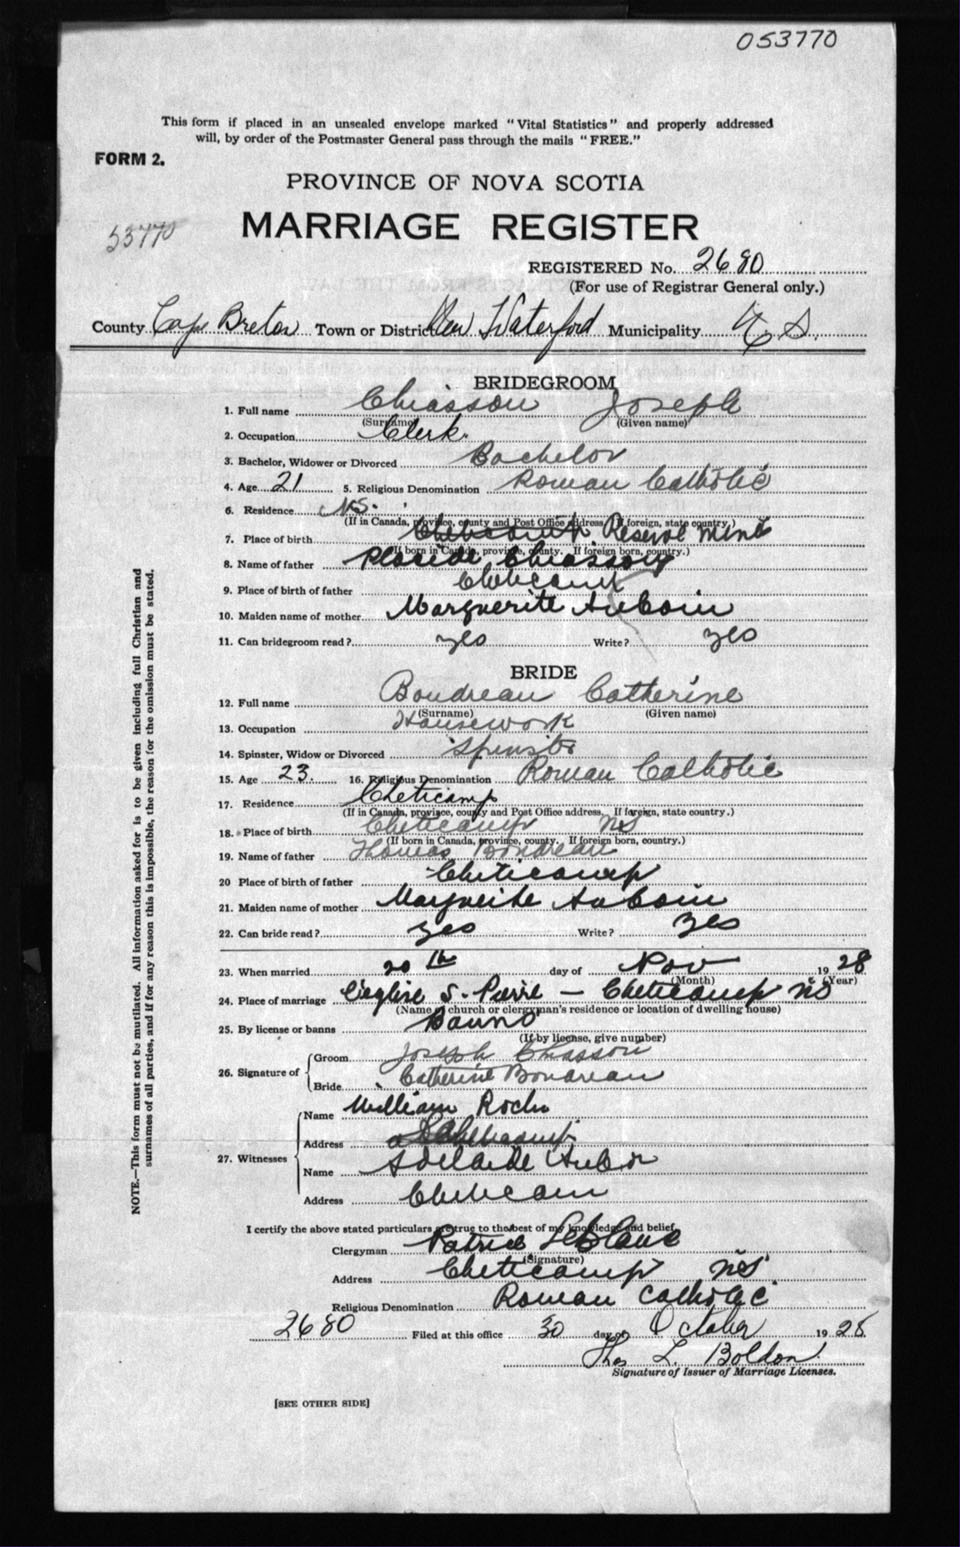 053770
This form if placed in an unsealed envelope marked "Vital Statistics" and properly addressed
will, by order of the Postmaster General pass through the mails "FREE."
FORM 2.
PROVINCE OF NOVA SCOTIA
53770
MARRIAGE REGISTER
REGISTERED No. 2680
(For use of Registrar General only.)
County Cape Breton Town or District New Waterford Municipality
BRIDEGROOM
1. Full name Chiasson Joseph
(Surname) (Given name)
2. Occupation Clerk
3. Bachelor, Widower or Divorced Bachelor
4. Age 21 5. Religious Denomination Roman Catholic
6. Residence N.S.
(If in Canada, province, county and Post Office address, If foreign, state country.)
7. Place of birth Cheticamp Reserve Mine
(If born in Canada, province, county. If foreign born, country.)
8. Name of father Placide Chiasson
9. Place of birth of father Cheticamp
10. Maiden name of mother Marguerite Aucoin
11. Can bridegroom read? yes Write? yes
BRIDE
12. Full name Boudreau Catherine
(Surname) (Given name)
13. Occupation Housework
14. Spinster, Widow or Divorced Spinster
15. Age 23. 16. Religious Denomination Roman Catholic
17. Residence Cheticamp
(If in Canada, province, county and Post Office address, If foreign, state country.)
18. Place of birth Cheticamp NS
(If born in Canada, province, county. If foreign born, country.)
19. Name of father Thomas Boudreau
20 Place of birth of father Cheticamp
21. Maiden name of mother Marguerite Aucoin
22. Can bride read? yes Write? yes
23. When married 20th day of Nov 1928
(Month) (Year)
24. Place of marriage L'eglise S. Pierre - Cheticamp NS
(Name of church or clergyman's residence or location of dwelling house)
25. By license or banns Banns
(If by license, give number)
26. Signature of Groom Joseph Chiasson
Bride Catherine Boudreau
27. Witnesses
Name William Roche
Address Cheticamp
Name Adelaide Aucoin
Address Cheticam
I certify the above stated particulars are true to the best of my knowledge and belief.
Clergyman Patrice LeBlanc
(Signature)
Address Cheticamp NS
Religious Denomination Roman Catholic
2680 Filed at this office 30 day of October 1928
Thos L. Bolton
Signature of Issuer of Marriage Licenses.
[SEE OTHER SIDE]
NOTE.—This form must not be mutilated. All information asked for is to be given including full Christian and
surnames of all parties, and if for any reason this is impossible, the reason for the omission must be stated.